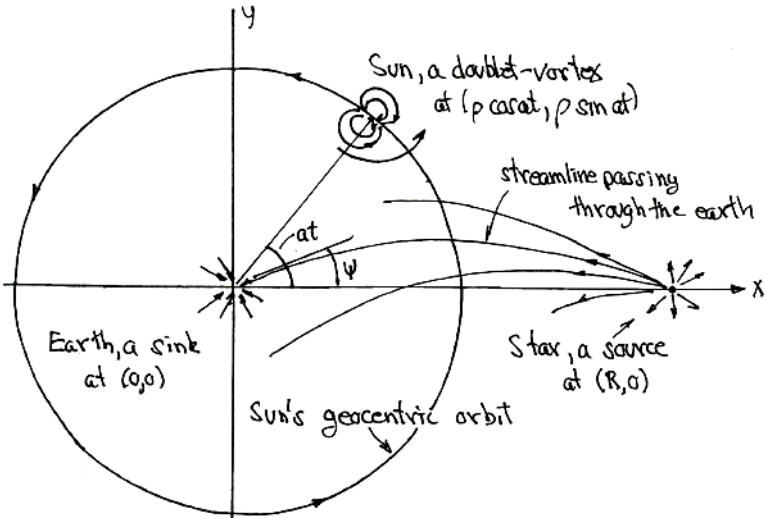 y
Sun, a doublet-vortex
at (ρ cos at, ρ sin at)
streamline passing
through the earth
at
ψ
x
Earth, a sink
at (0,0)
Star, a source
at (R,0)
Sun's geocentric orbit